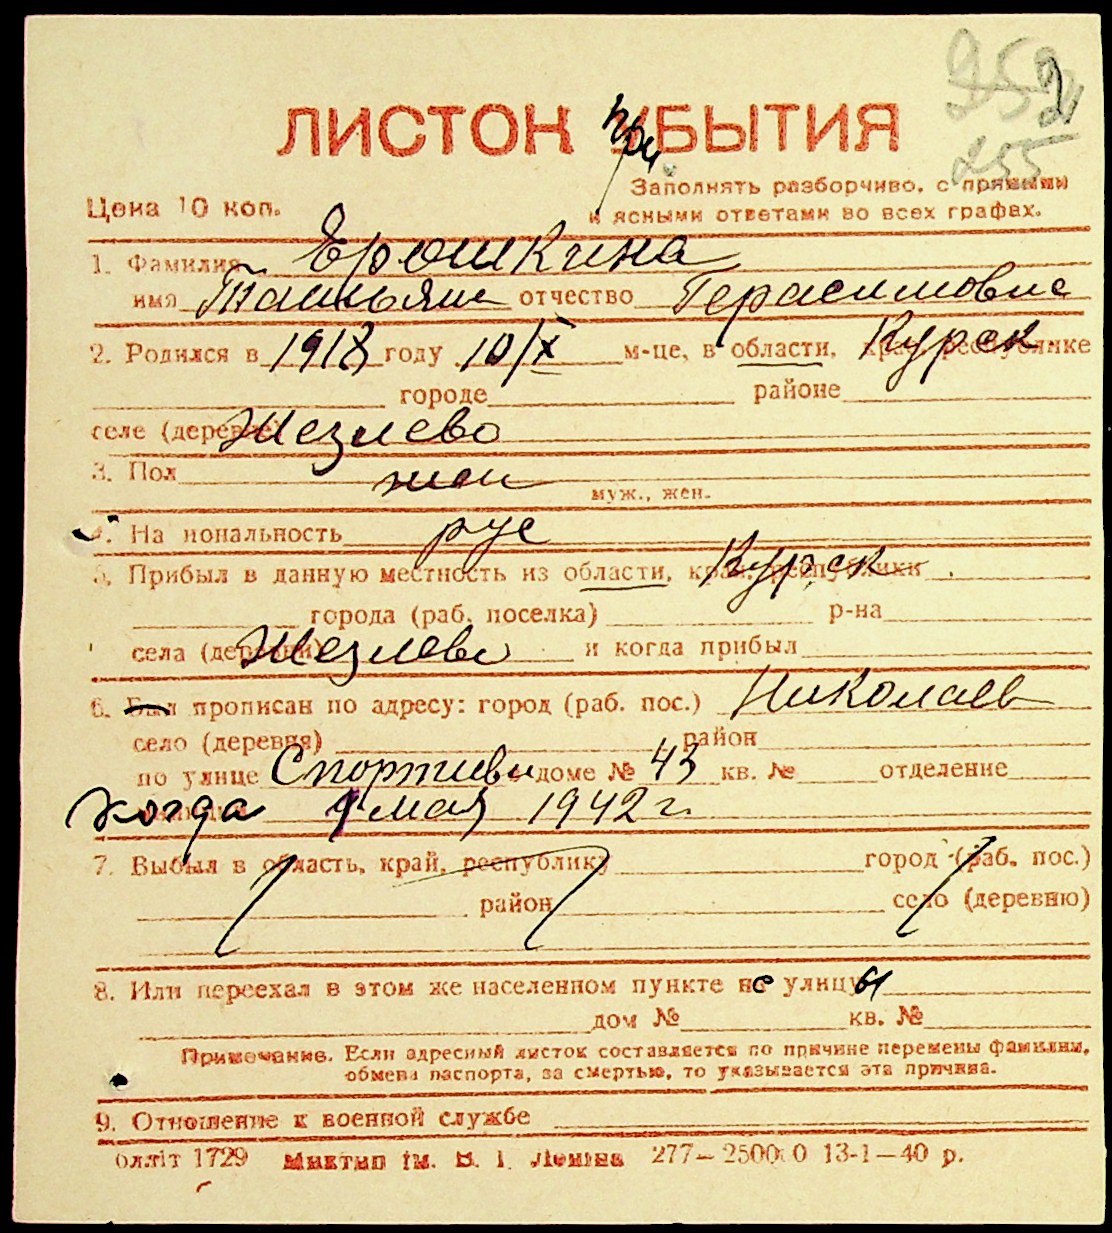 952
255
ЛИСТОК при БЫТИЯ
Заполнять разборчиво, с прямыми
Цена 10 коп.
и ясными ответами во всех графах.
1. Фамилия Ерошкина
имя Татьяна отчество Герасимовна
2. Родился в 1918 году 10/X м-це, в области, Курск. республике
городе районе
селе (деревне) Жезлево
3. Пол жен
муж., жен.
4. Национальность рус
5. Прибыл в данную местность из области, края, республики Курск
города (раб. поселка) р-на
села (деревни) Жезлево и когда прибыл
6. Был прописан по адресу: город (раб. пос.) Николаев
село (деревня) район
по улице Спортивн доме № 43 кв. № отделение
когда 1 мая 1942 г.
7. Выбыл в область, край, республику город (раб. пос.)
район село (деревню)
8. Или переехал в этом же населенном пункте с улицы
дом № кв. №
Примечание. Если адресный листок составляется по причине перемены фамилии,
обмена паспорта, за смертью, то указывается эта причина.
9. Отношение к военной службе
1729 ім. В. І. Леніна 277— 13-1—40 р.